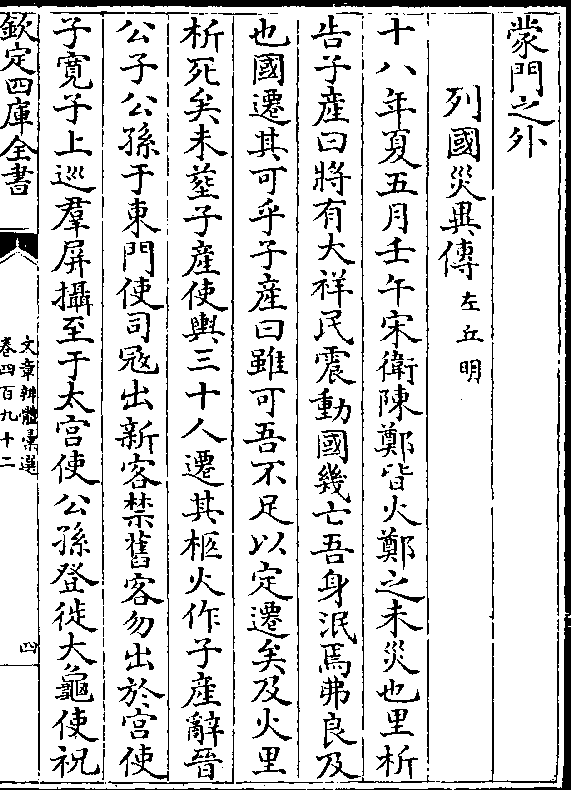 蒙門之外
列國災異傳 左丘明
十八年夏五月壬午宋衛陳鄭皆火鄭之未災也里析
告子產曰將有大祥民震動國幾亡吾身泯焉弗良及
也國遷其可乎子產曰雖可吾不足以定遷矣及火里
析死矣未塟子產使輿三十人遷其柩火作子產辭晉
公子公孫于東門使司寇出新客禁舊客勿出於宮使
子寛子上巡羣屏攝至于太宫使公孫登徙大龜使祝
欽定四庫全書
文章辨體彚選
卷四百九十二
四